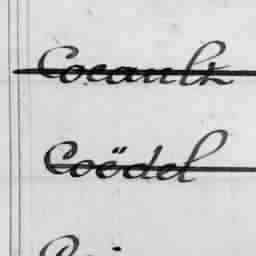 Cocault
Coëdel